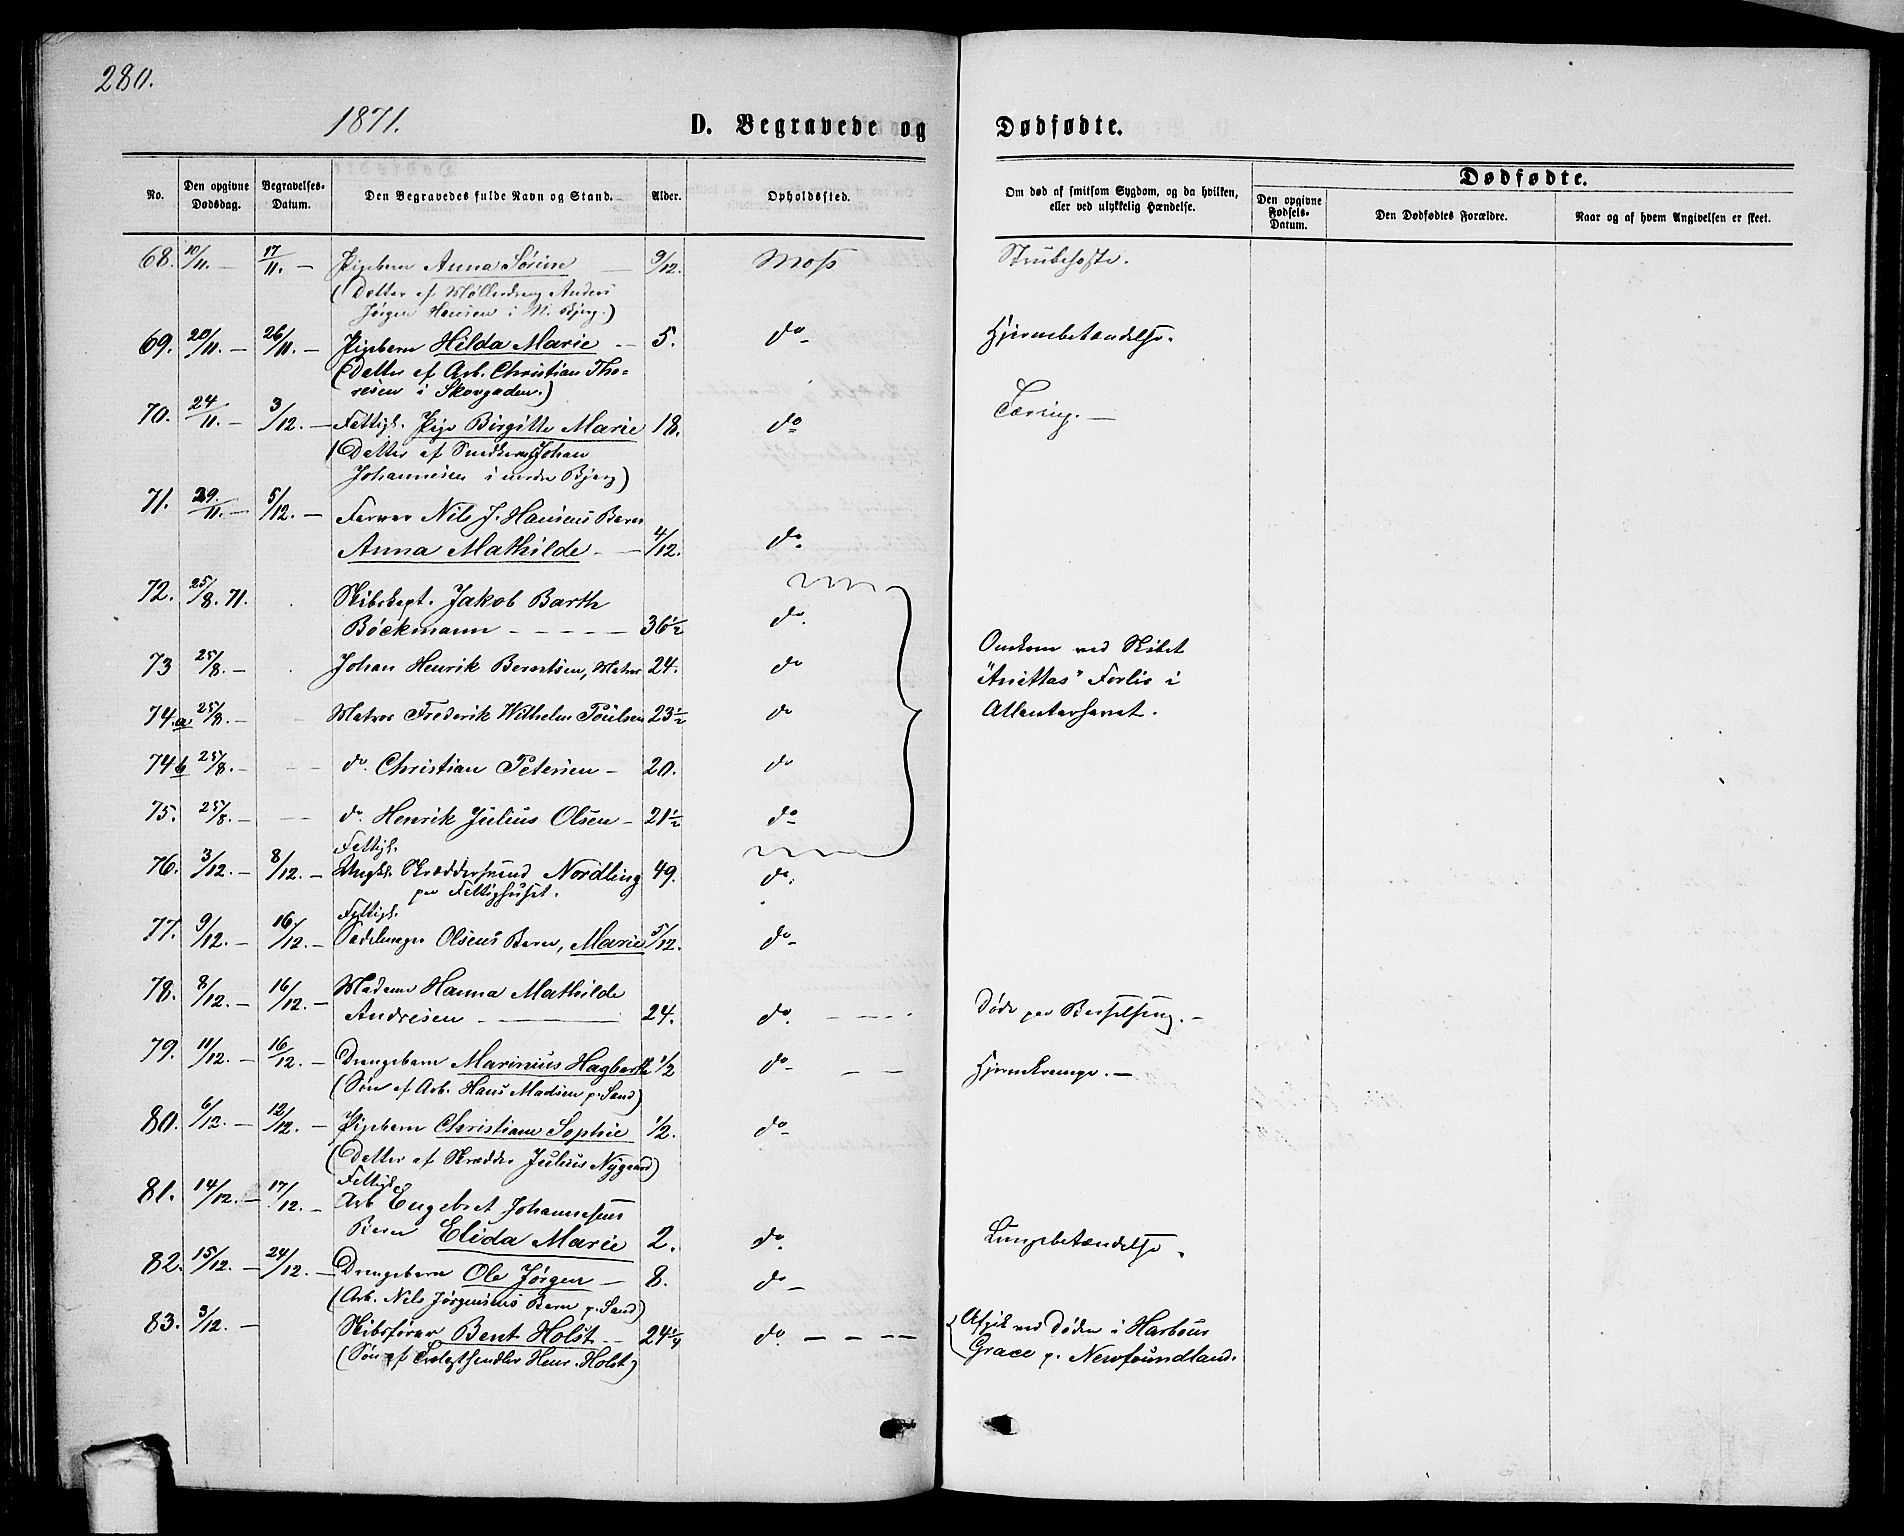 280.
1871.
D. Begravede og Dødfødte.
No.
Den opgivne Dødsdag.
Begravelses-Datum.
Den Begravedes fulde Navn og Stand.
Alder.
Opholdssted.
Om død af smitsom Sygdom, og da hvilken, eller ved ulykkelig Hændelse.
Dødfødte.
Den opgivne Fødsels-Datum.
Den Dødfødtes Forældre.
Naar og af hvem Angivelsen er skeet.
68. 10/11. — 17/11. — Pigebarn Anna Sørine — 9/12. Moss Strubehoste.
(Datter af Møllerdreng Anders
Jørgen Hansen i N. Bjerg.)
69. 20/11. — 26/11. — Pigebarn Hilda Marie — 5. do Hjernebetændelse.
(Datter af Arb. Christian Tho-
resen i Skovgaden.)
70. 24/11. — 3/12. — Fattigl. Pige Birgitte Marie 18. do Tæring. —
(Datter af Snedker Johan
Johannesen i nedre Bjerg)
71. 29/11. — 5/12. — Farver Nils J. Hansens Barn
Anna Mathilde — 4/12. do.
72. 25/8. 71. Skibskapt. Jakob Barth
Böckmann — 36½ do.
73 25/8. — Johan Henrik Berntsen, Matros 24. do
Omkom ved Skibet
"Anittas" Forlis i
Atlanterhavet.
74.a 25/8. — Matros Frederik Wilhelm Poulsen 23½ do
74 b 25/8. — do. Christian Petersen — 20. do
75. 25/8. — do. Henrik Julius Olsen — 21½ do
Fattigl.
76. 3/12. — 8/12. — Ungkl. Skræddersvend Nordling 49. do.
paa Fattighuset.
Fattigl.
77. 9/12. — 16/12. — Sadelmager Olsens Barn, Marie 5/12. do
78. 8/12. — 16/12. — Madame Hanna Mathilde
Andresen — 24. do. Døde paa Barselseng. —
79. 11/12. — 16/12. — Drengebarn Marinius Hagbarth 1/2 do Hjernekrampe. —
(Søn af Arb. Hans Madsen p. Sand)
80. 6/12. — 12/12. — Pigebarn Christiane Sophie 1/2. do
(Datter af Skrædder Julius Nygaard)
Fattigl.
81. 14/12. — 17/12. — Arb Engebret Johannesens
Barn Elida Marie 2. do. Lungebetændelse.
82. 15/12. — 24/12. — Drengebarn Ole Jørgen — 8. do —
(Arb. Nils Jørgensens Barn p. Sand)
83. 3/12. — Skibsfører Bent Holst — 24¼ do. — — — (Afgik ved Døden i Harbour
(Søn af Trælasthandler Henr. Holst) Grace p. Newfoundland.